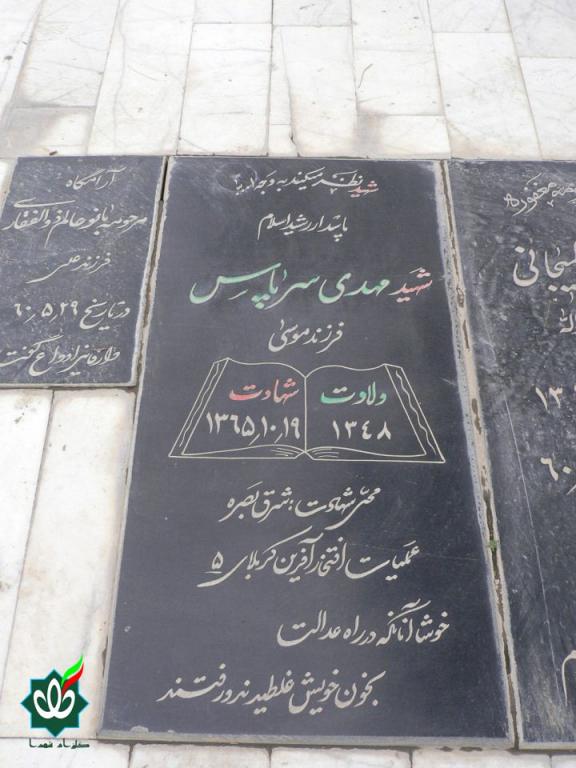 شهید نظر میکند به وجه الله
پاسدار رشید اسلام
شهید مهدی سرپاس
فرزند موسی
ولادت
۱۳۴۸
شهادت
۱۳۶۵٫۱۰٫۱۹
محل شهادت : شرق بصره
عملیات افتخار آفرین کربلای ۵
خوشا آنانکه در راه عدالت
بخون خویش غلطیدند و رفتند
آرامگاه
مرحومه بانو خانم ذوالفقاری
فرزند عباس
در تاریخ ۶۰٫۵٫۲۹
دار فانی را وداع گفت
مغفوره
۱۳
۶۰